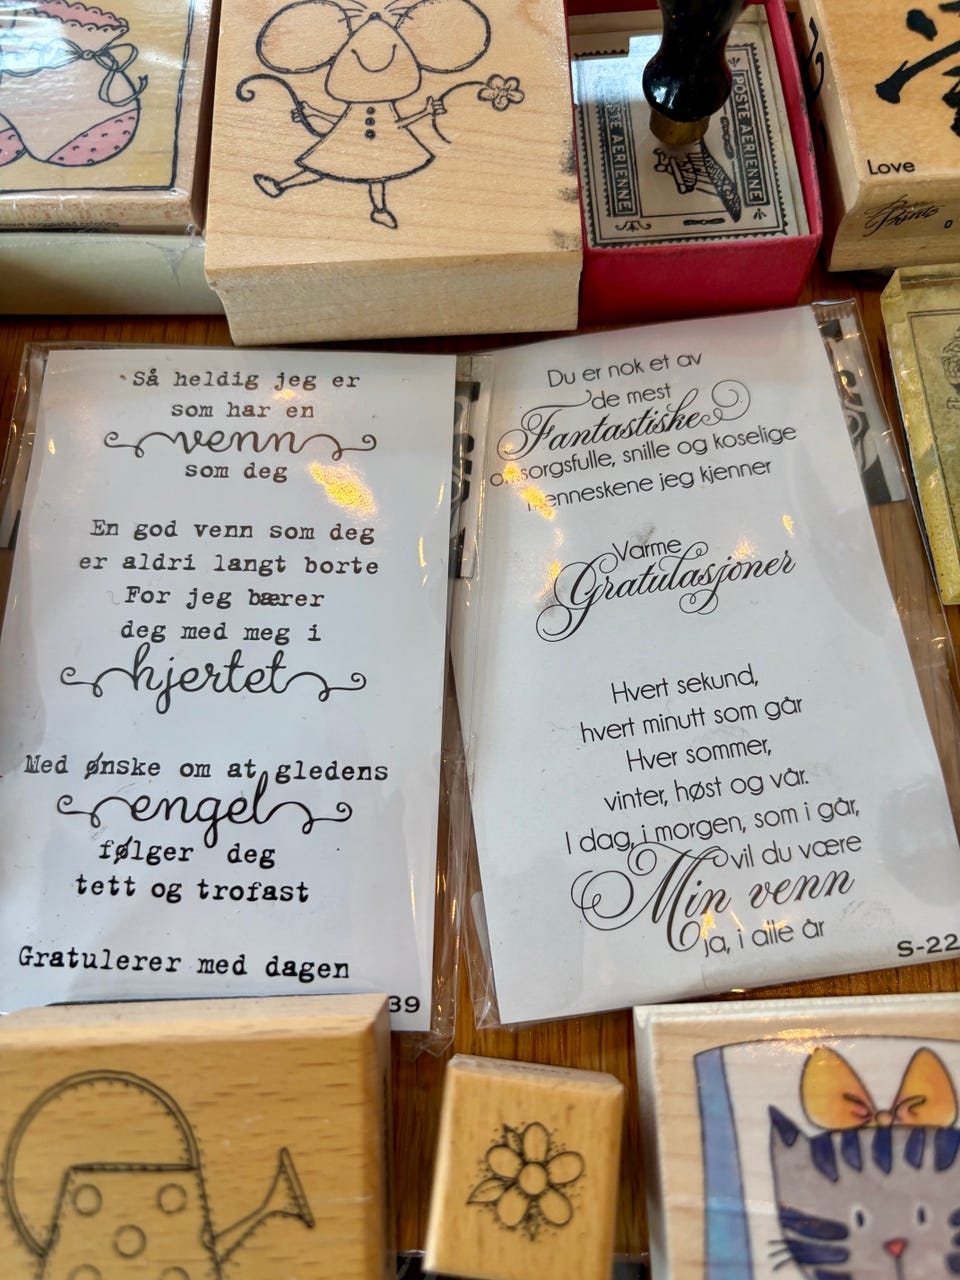 POSTE AERIENNE
POSTE AERIENNE
Love
Prints
Så heldig jeg er
som har en
venn
som deg
En god venn som deg
er aldri langt borte
For jeg bærer
deg med meg i
hjertet
Med ønske om at gledens
engel
følger deg
tett og trofast
Gratulerer med dagen
39
Du er nok et av
de mest
Fantastiske
omsorgsfulle, snille og koselige
menneskene jeg kjenner
Varme
Gratulasjoner
Hvert sekund,
hvert minutt som går
Hver sommer,
vinter, høst og vår.
I dag, i morgen, som i går,
vil du være
Min venn
ja, i alle år
S-22